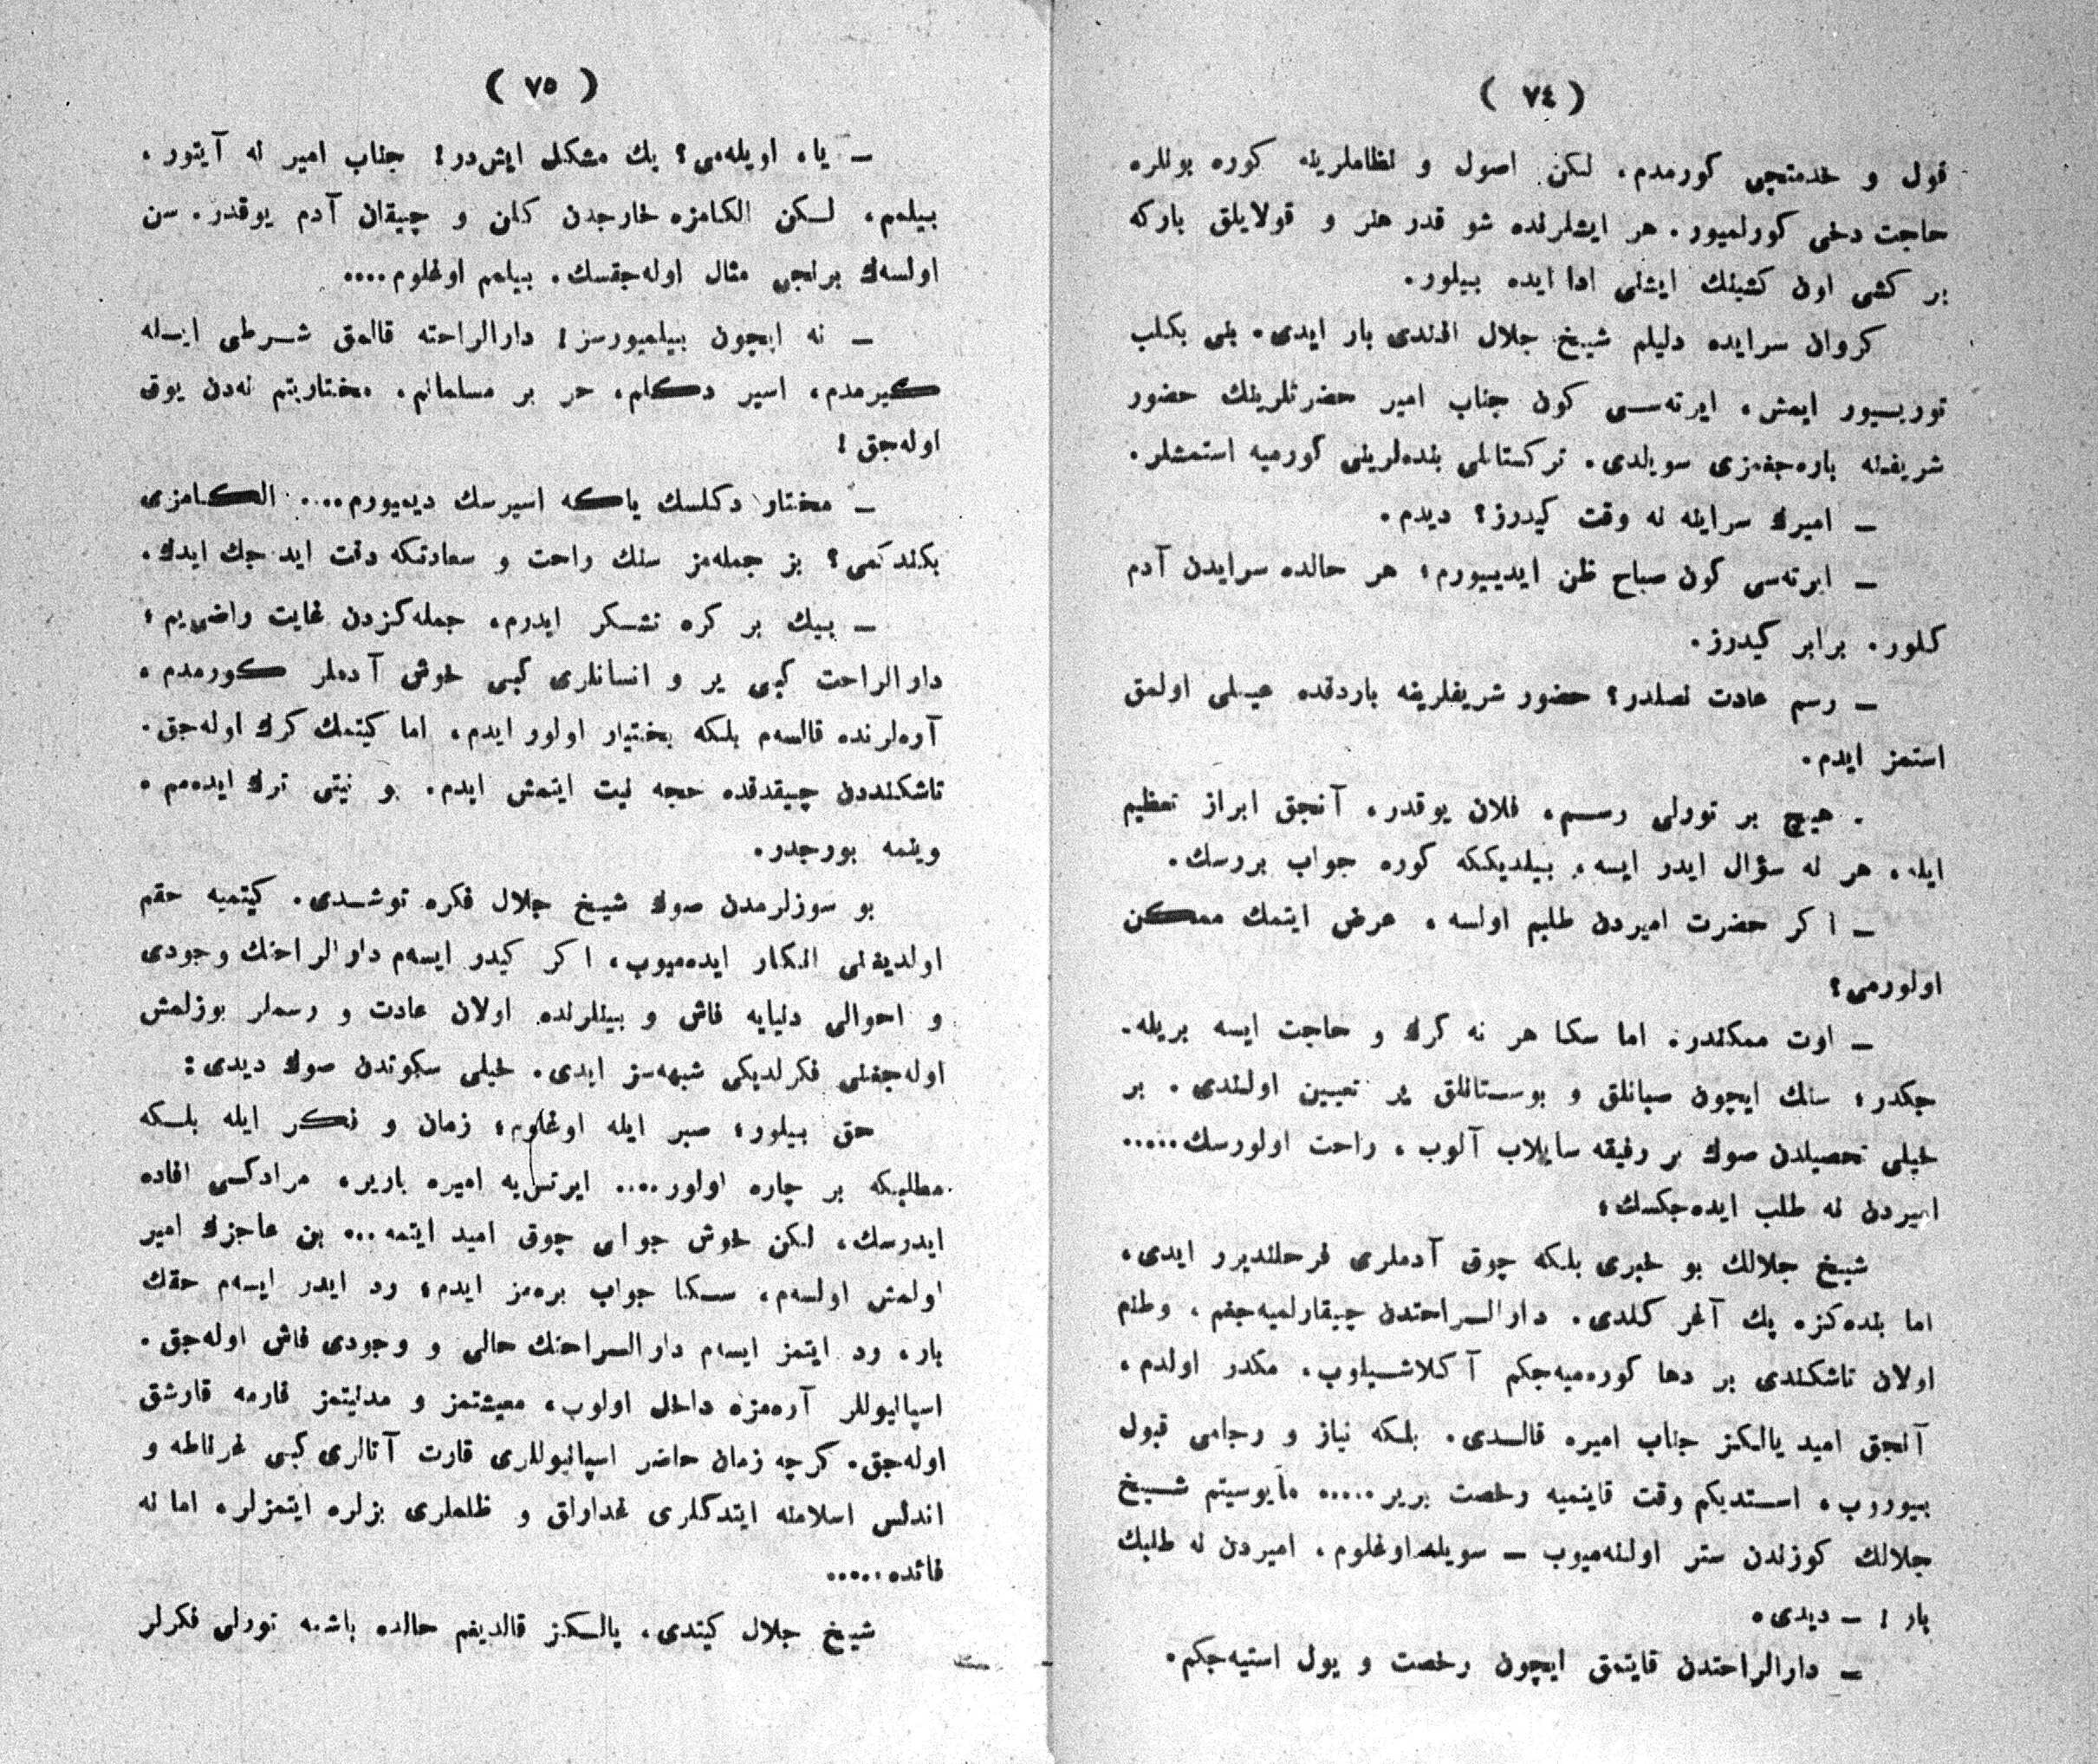 ( ٧٤ )
قول و خدمتچی كورمدم، لكن اصول و نظاملرینه كوره بوللره
حاجت دخی كورلمیور. هر ایشلرنده شو قدر هنر و قولایلق باركه
بر كشی اون كشینك ایشنی ادا ایده بیلور.
كروان سرایده دلیلم شیخ جلال افندی بار ایدی. بنی بكلب
توریسیور ایمش، ایرته‌سی كون جناب امیر حضرتلرینك حضور
شریفنه باره‌جغمزی سویلدی. تركستانلی بنده‌لرینی كورمیه استمشلر.
ـ امیرك سراینه نه وقت كیدرز؟ دیدم.
ـ ایرته‌سی كون صباح ظن ایدییورم؛ هر حالده سرایدن آدم
كلور. برابر كیدرز.
ـ رسم عادت نصلدر؟ حضور شریفلرینه باردقده عیبلی اولمق
استمز ایدم.
. هیچ بر تورلی رسم، فلان یوقدر، آنجق ابراز تعظیم
ایله، هر نه سؤال ایدر ایسه، بیلدیككه كوره جواب بررسك.
ـ اكر حضرت امیردن طلبم اولسه، عرض ایتمك ممكن
اولورمی؟
ـ اوت ممكندر. اما سكا هر نه كرك و حاجت ایسه بریله‌
جكدر؛ سنك ایچون صبانلق و بوستانلق یر تعیین اولندی. بر
خیلی تحصیلدن صوك بر رفیقه سایلاب آلوب، راحت اولورسك.....
امیردن نه طلب ایده‌جكسك؛
شیخ جلالك بو خبری بلكه چوق آدملری فرحلندیرر ایدی،
اما بنده‌كزه پك آغر كلدی. دارالراحتدن چیقارلمیه‌جغم، وطنم
اولان تاشكندی بر دها كوره‌میه‌جكم آكلاشیلوب، مكدر اولدم،
آنجق امید یالكز جناب امیره قالدی. بلكه نیاز و رجامی قبول
بیوروب، استدیكم وقت قایتمیه رخصت بریر..... مأیوسیتم شیخ
جلالك كوزندن ستر اولنه‌میوب ـ سویله اوغلوم، امیردن نه طلبك
بار ! ـ دیدی.
ـ دارالراحتدن قایتمق ایچون رخصت و یول استیه‌جكم.
( ٧٥ )
ـ یا، اویله‌می؟ پك مشكل ایش‌در! جناب امیر نه آیتور،
بیلمم، لكن الكامزه خارجدن كلن و چیقان آدم یوقدر. سن
اولسه‌ك برنجی مثال اوله‌جقسك. بیلمم اوغلوم....
ـ نه ایچون بیلمیورسز! دارالراحته قالمق شرطی ایله
كیرمدم، اسیر دكلم، حر بر مسلمانم، مختاریتم نه‌دن یوق
اوله‌جق!
ـ مختار دكلسك یاكه اسیرسك دیمیورم.... الكامزی
بكندكمی؟ بز جمله‌مز سنك راحت و سعادتكه دقت ایده‌جك ایدك.
ـ بیك بر كره تشكر ایدرم، جمله‌كزدن غایت راضی‌یم؛
دارالراحت كبی یر و انسانلری كبی خوش آدملر كورمدم،
آره‌لرنده قالسه‌م بلكه بختیار اولور ایدم، اما كیتمك كرك اوله‌جق.
تاشكنددن چیقدقده حجه نیت ایتمش ایدم. بو نیتی ترك ایده‌مم،
وینمه بورجدر.
بو سوزلرمدن صوك شیخ جلال فكره توشدی. كیتمیه حقم
اولدیغنی انكار ایده‌میوب، اكر كیدر ایسه‌م دارالراحتك وجودی
و احوالی دنیایه فاش و بینلرنده اولان عادت و رسملر بوزلمش
اوله‌جغنی فكرلدیكی شبهه‌سز ایدی. خیلی سكوتدن صوك دیدی:
حق بیلور؛ صبر ایله اوغلوم؛ زمان و فكر ایله بلكه
مطلبكه بر چاره اولور.... ایرتس‌یه امیره باریر، مرادكنی افاده
ایدرسك، لكن خوش جوابی چوق امید ایتمه... بن عاجزك امیر
اولمش اولسه‌م، سكا جواب بره‌مز ایدم؛ رد ایدر ایسه‌م حقك
بار، رد ایتمز ایسه‌م دارالراحتك حالی و وجودی فاش اوله‌جق.
اسپانیوللر آره‌مزه داخل اولوب، معیشتمز و مدنیتمز قارمه قارشق
اوله‌جق. كرچه زمان حاضر اسپانیوللری قارت آنالری كبی غرناطه و
اندلس اسلامنه ایتدكلری غدارلق و ظلملری بزلره ایتمزلر، اما نه
فائده.....
شیخ جلال كیتدی، یالكز قالدیغم حالده باشمه تورلی فكرلر